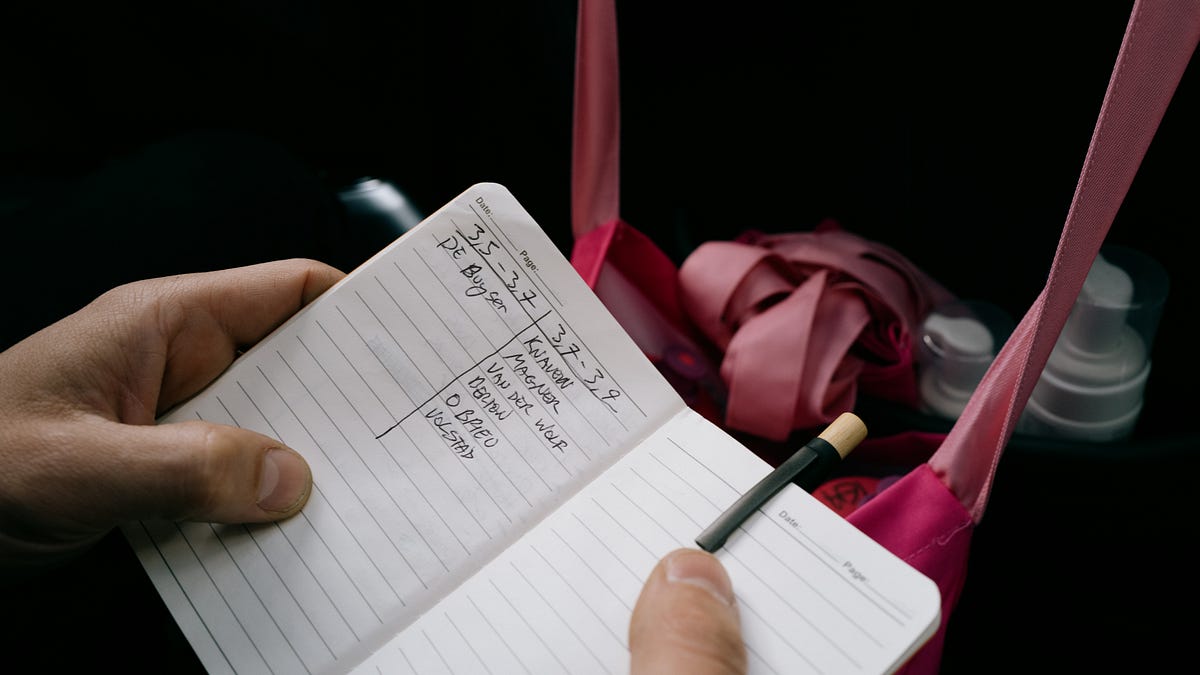 Date: Page:
3,5 - 3,7
DE Buyser
3,7 - 3,9
KNAVEN
MAGNER
VAN DER WOLF
O BRIEU
VOLSTAD
Date: Page: